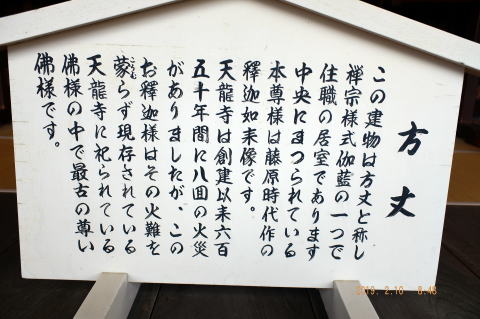 方丈
この建物は方丈と称し
禅宗様式伽藍の一つで
住職の居室であります
中央にまつられている
本尊様は藤原時代作の
釋迦如来像です。
天龍寺は創建以来六百
五十年間に八回の火災
がありましたが、この
お釈迦様はその火難を
蒙らず現存されている
天龍寺に祀られている
佛様の中で最古の尊い
佛様です。
2019. 2.10 8:48